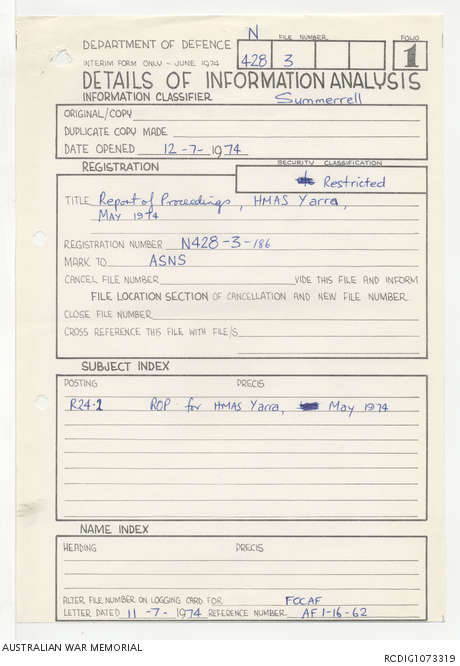 N FILE NUMBER FOLIO
DEPARTMENT OF DEFENCE
INTERIM FORM ONLY - JUNE 1974 428 3 1
DETAILS OF INFORMATION ANALYSIS
INFORMATION CLASSIFIER Summerrell
ORIGINAL/COPY
DUPLICATE COPY MADE
DATE OPENED 12-7-1974
REGISTRATION SECURITY CLASSIFICATION
Restricted
TITLE Report of Proceedings, HMAS Yarra,
MAY 1974
REGISTRATION NUMBER N428-3-186
MARK TO ASNS
CANCEL FILE NUMBER VIDE THIS FILE AND INFORM
FILE LOCATION SECTION OF CANCELLATION AND NEW FILE NUMBER
CLOSE FILE NUMBER
CROSS REFERENCE THIS FILE WITH FILE/S
SUBJECT INDEX
POSTING PRECIS
R24.2 ROP for HMAS Yarra, May 1974
NAME INDEX
HEADING PRECIS
ALTER FILE NUMBER ON LOGGING CARD FOR FOCAF
LETTER DATED 11-7-1974 REFERENCE NUMBER AF 1-16-62
AUSTRALIAN WAR MEMORIAL RCDIG1073319